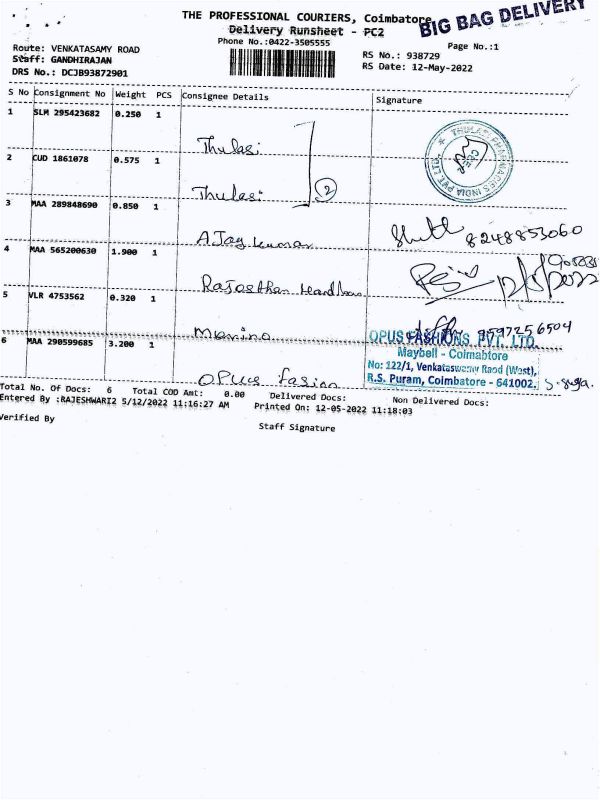 THE PROFESSIONAL COURIERS, Coimbatore
BIG BAG DELIVERY
Delivery Runsheet - PC2
Phone No.:0422-3505555
Page No.:1
Route: VENKATASAMY ROAD
Staff: GANDHIRAJAN
DRS No.: DCJB93872901
RS No.: 938729
RS Date: 12-May-2022
S No Consignment No Weight PCS Consignee Details Signature
1 SLM 295423682 0.250 1 Thulasi
2 CUD 1861078 0.575 1 Thulasi 2
THULASI PHARMACIES INDIA PVT LTD
3 MAA 289848690 0.850 1 AJay kumar 8248853060
4 MAA 565200630 1.900 1 Rajasthan 12/5/2022
5 VLR 4753562 0.320 1 9597256504
6 MAA 290599685 3.200 1 OPUS fasion
OPUS FASHIONS PVT. LTD.
Maybell - Coimabtore
No: 122/1, Venkataswamy Raod (West),
R.S. Puram, Coimbatore - 641002.
Total No. Of Docs: 6 Total COD Amt: 0.00 Delivered Docs: Non Delivered Docs:
Entered By :RAJESHWARI2 5/12/2022 11:16:27 AM Printed On: 12-05-2022 11:18:03
Verified By
Staff Signature